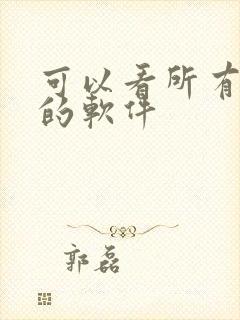 可以看所有
的軟件
郭磊